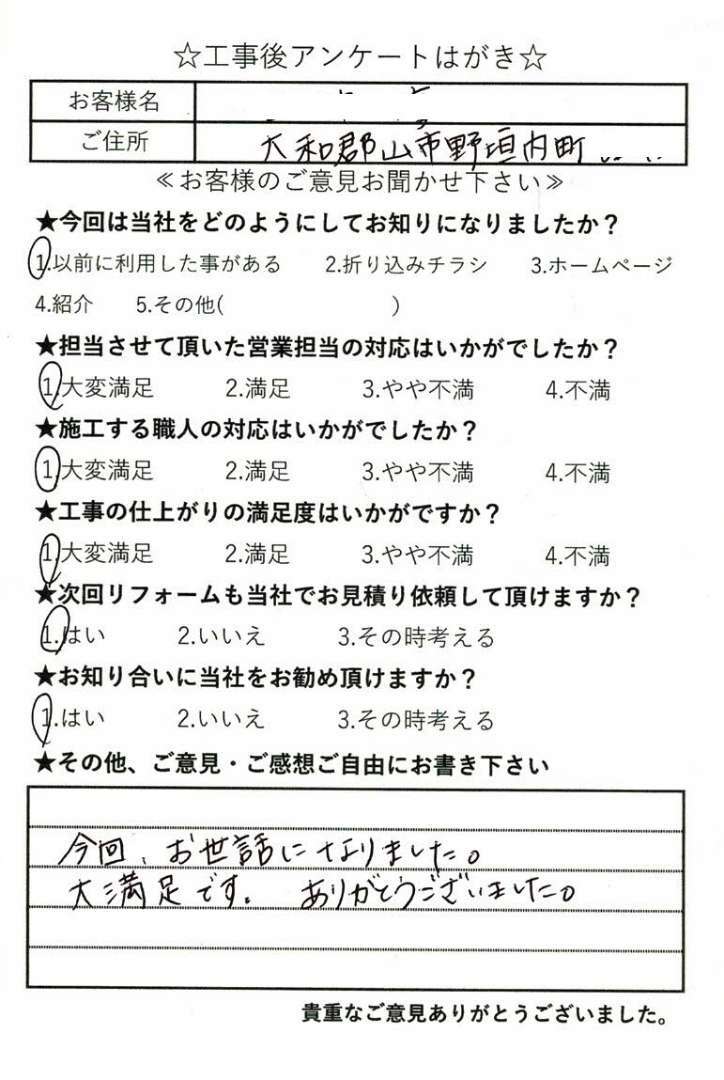 ☆工事後アンケートはがき☆
お客様名
ご住所 大和郡山市野垣内町
≪お客様のご意見お聞かせ下さい≫
★今回は当社をどのようにしてお知りになりましたか？
1.以前に利用した事がある 2.折り込みチラシ 3.ホームページ
4.紹介 5.その他( )
★担当させて頂いた営業担当の対応はいかがでしたか？
1.大変満足 2.満足 3.やや不満 4.不満
★施工する職人の対応はいかがでしたか？
1.大変満足 2.満足 3.やや不満 4.不満
★工事の仕上がりの満足度はいかがですか？
1.大変満足 2.満足 3.やや不満 4.不満
★次回リフォームも当社でお見積り依頼して頂けますか？
1.はい 2.いいえ 3.その時考える
★お知り合いに当社をお勧め頂けますか？
1.はい 2.いいえ 3.その時考える
★その他、ご意見・ご感想ご自由にお書き下さい
今回、お世話になりました。
大満足です。 ありがとうございました。
貴重なご意見ありがとうございました。